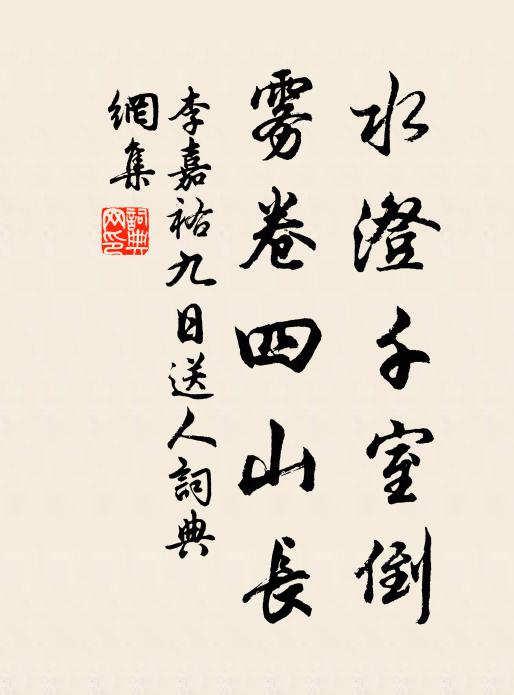 水澄千室倒
雾卷四山長
李嘉祐九日送人詞典
網集
詞典
网印